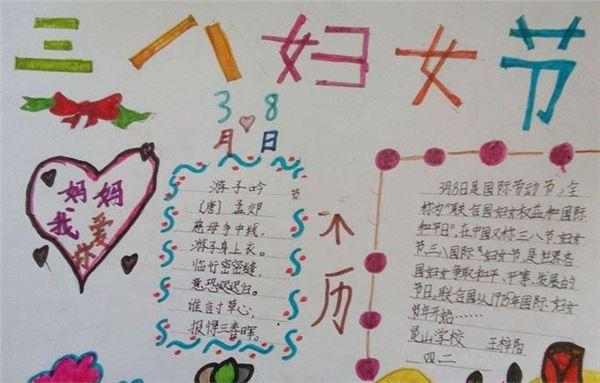 三八妇女节
3月8日
妈妈
我爱
你
游子吟
(唐)孟郊
慈母手中线,
游子身上衣。
临行密密缝,
意恐迟迟归。
谁言寸草心,
报得三春晖。
节
不
历
3月8日是国际劳动节,全
称为"联合国妇女权益和国际
和平日"。在中国又称三八妇女
节,三八国际"妇女节,是世界各
国妇女争取和平、平等、发展的
节日。联合国从1975年国际妇女
节年开始……
昆山学校 王梓
四二